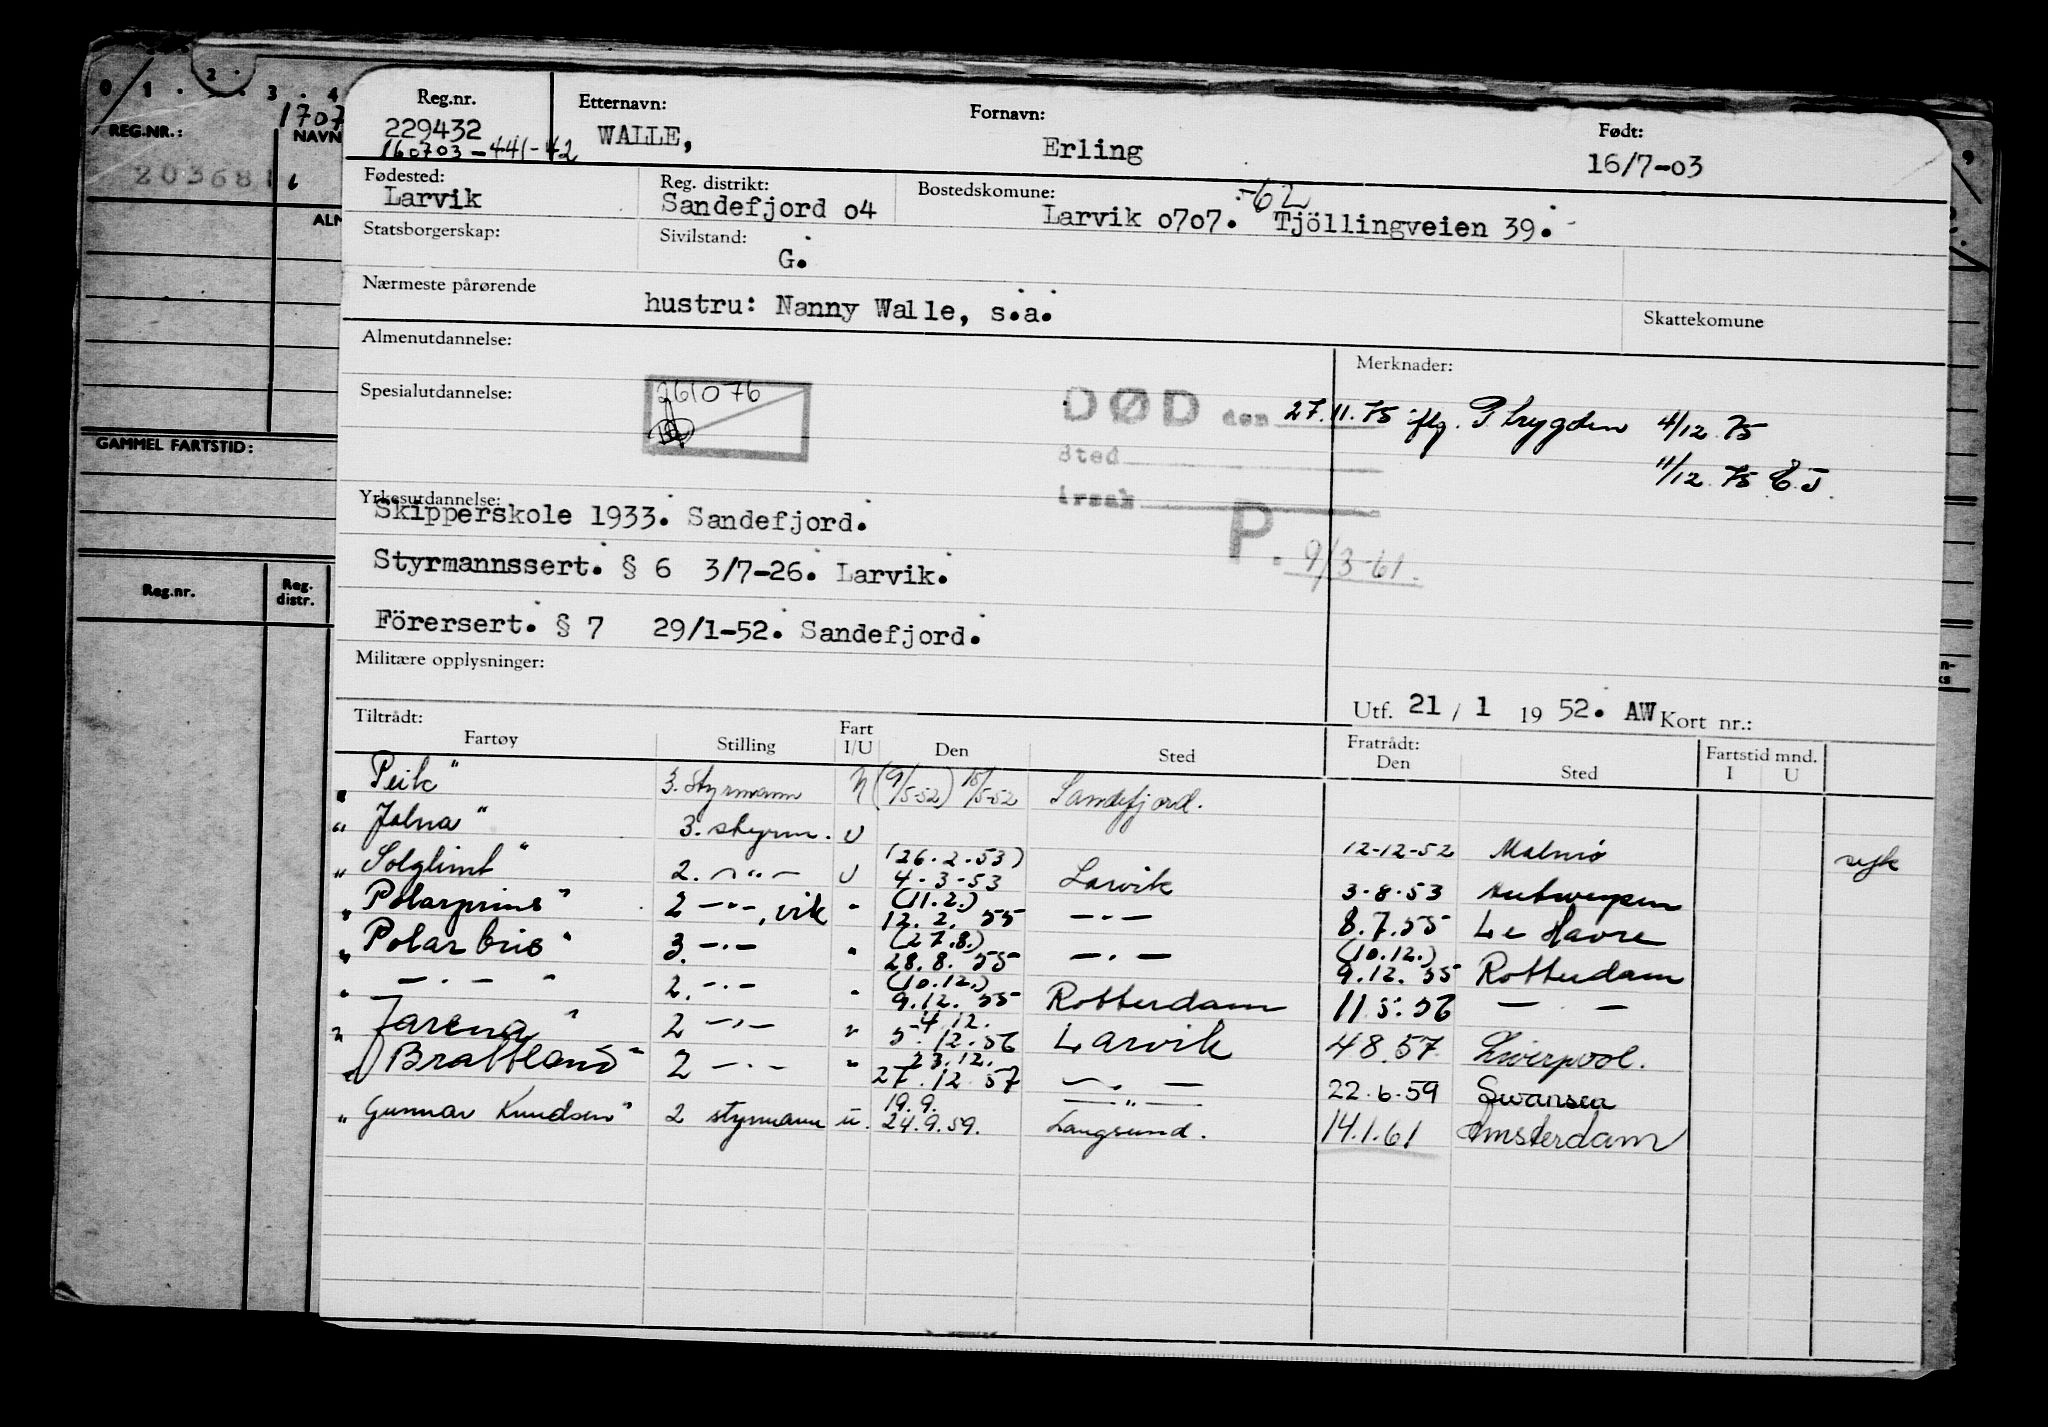 0 1 . 2 . 3 . 4
1707
REG.NR.: NAVN
203681
ALM
GAMMEL FARTSTID:
Reg.nr. Reg. distr.
Reg.nr. Etternavn: Fornavn: Født:
229432 WALLE, Erling 16/7-03
160703-441-42
Fødested: Reg. distrikt: Bostedskomune: -62
Larvik Sandefjord o4 Larvik o7o7. Tjöllingveien 39.
Statsborgerskap: Sivilstand:
G.
Nærmeste pårørende
hustru: Nanny Walle, s.a.
Skattekomune
Almenutdannelse: Merknader:
Spesialutdannelse: 261076 DØD den 27.11.75 iflg. Trygden 4/12.75
Sted 11/12.75 E.J.
Yrkesutdannelse: årsak
Skipperskole 1933. Sandefjord. P. 9/3-61.
Styrmannssert. § 6 3/7-26. Larvik.
Förersert. § 7 29/1-52. Sandefjord.
Militære opplysninger:
Utf. 21 / 1 19 52. AW Kort nr.:
Tiltrådt: Fratrådt: Fartstid mnd.
Fartøy Stilling Fart I/U Den Sted Den Sted I U
"Peik" 3. Styrmann (9/5-52) 15/5-52 Sandefjord.
"Jalna" 3. styrm. U 12-12-52 Malmö syk
"Solglimt" 2. -"- U (26.2.53) 4-3-53 Larvik 3-8-53 Antwerpen
"Polarprins" 2 -"-, vik " (11.2.) 12.2.55 -"- 8.7.55 Le Havre
"Polarbris" 3. -"- " (27.8.) 28.8.55 -"- (10.12.) 9.12.55 Rotterdam
" -"- " 2. -"- " (10.12.) 9.12.55 Rotterdam 11.5.56 - -
"Jarena" 2 -"- " 4.12. 5.12.56 Larvik 4 8.57 Liverpool.
"Brattland" 2 -"- " 23.12. 27.12.57 -"- 22.6.59 Swansea
"Gunnar Knudsen" 2 styrmann u. 19.9. -"- 24.9.59. Langesund. 14.1.61 Amsterdam